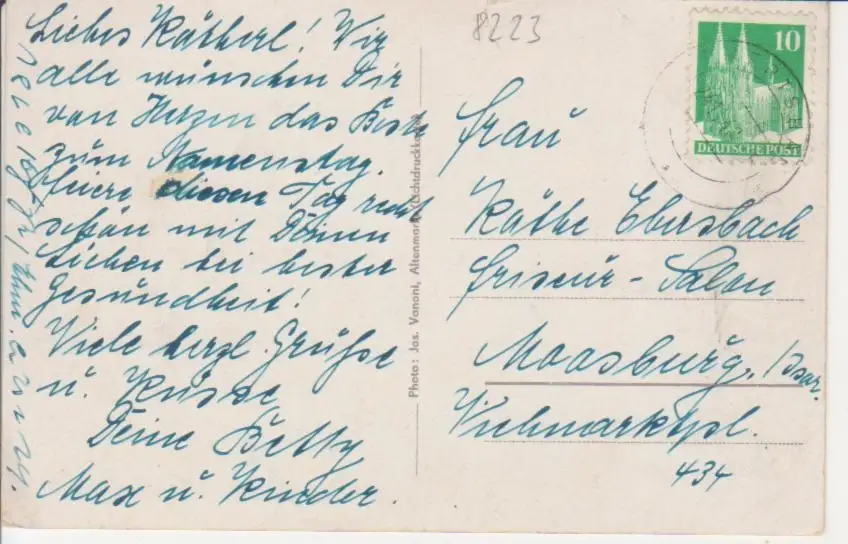 Liebes Kätherl! Wir
alle wünschen Dir
von Herzen das Beste
zum Namenstag.
Feiere diesen Tag recht
schön mit Deinen
Lieben bei bester
Gesundheit!
Viele herzl. Grüße
u. Küsse
Deine Betty
Max u. Kinder.
Photo: Jos. Vanoni, Altenmarkt (Lichtdruckkarte)
8223
10
DEUTSCHE POST
Frau
Käthe Ebersbach
Friseur-Salon
Moosburg, Isar.
Viehmarktpl.
434